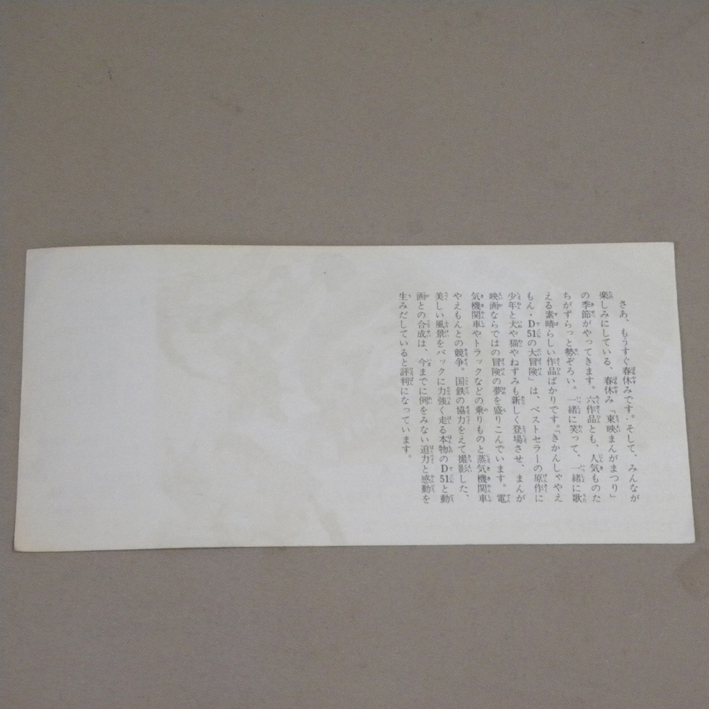 さあ、もうすぐ春休みです。そして、みんなが
楽しみにしている、春休み「東映まんがまつり」
の季節がやってきます。六作品とも、人気ものた
ちがずらっと勢ぞろい。一緒に笑って、一緒に歌
える素晴らしい作品ばかりです。「きかんしゃやえ
もん・D51の大冒険」は、ベストセラーの原作に
少年と犬や猫やねずみも新しく登場させ、まんが
映画ならではの冒険の夢を盛りこんでいます。電
気機関車やトラックなどの乗りものと蒸気機関車
やえもんとの競争。国鉄の協力をえて撮影した、
美しい風景をバックに力強く走る本物のD51と動
画との合成は、今までに例をみない迫力と感動を
生みだしていると評判になっています。